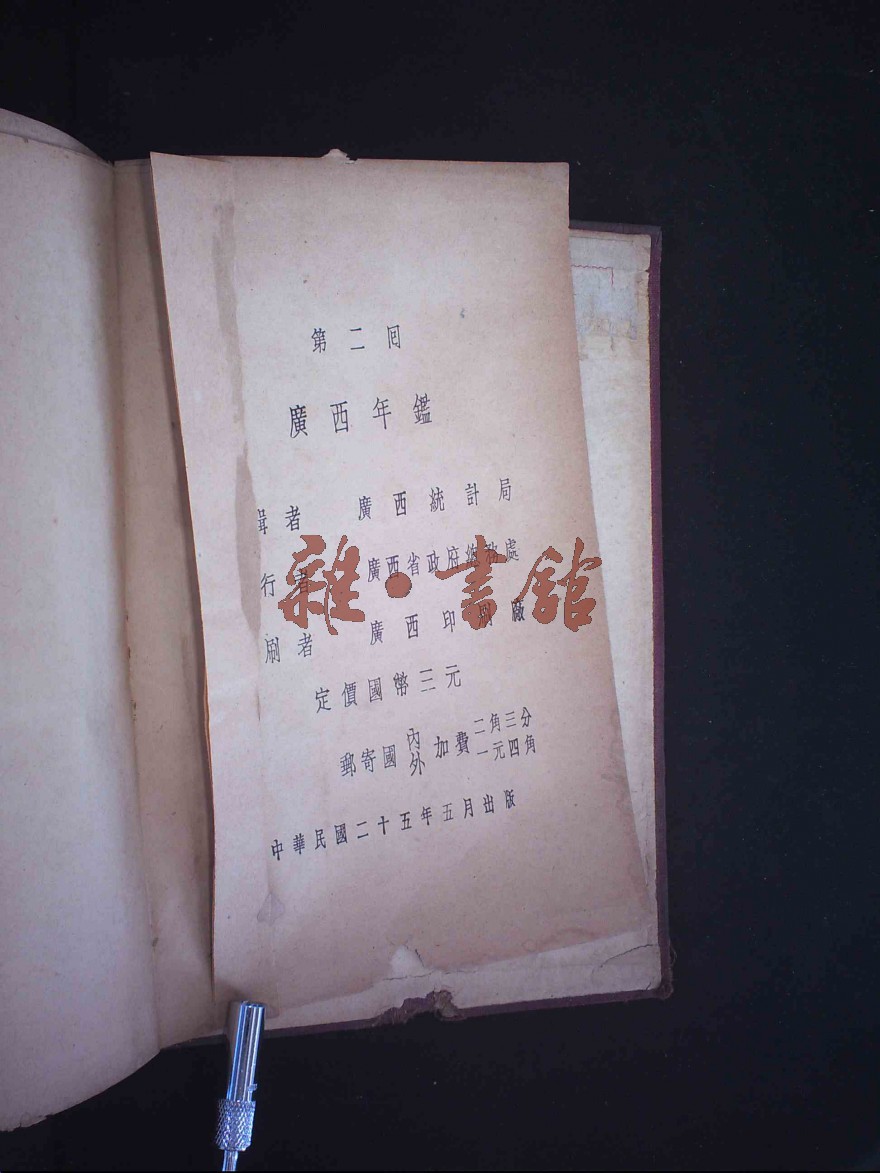 第二回
廣西年鑑
輯者 廣西統計局
行者 廣西省政府總務處
刷者 廣西印刷廠
定價國幣三元
郵寄國內外加費二角三分一元四角
中華民國二十五年五月出版
雜·書館